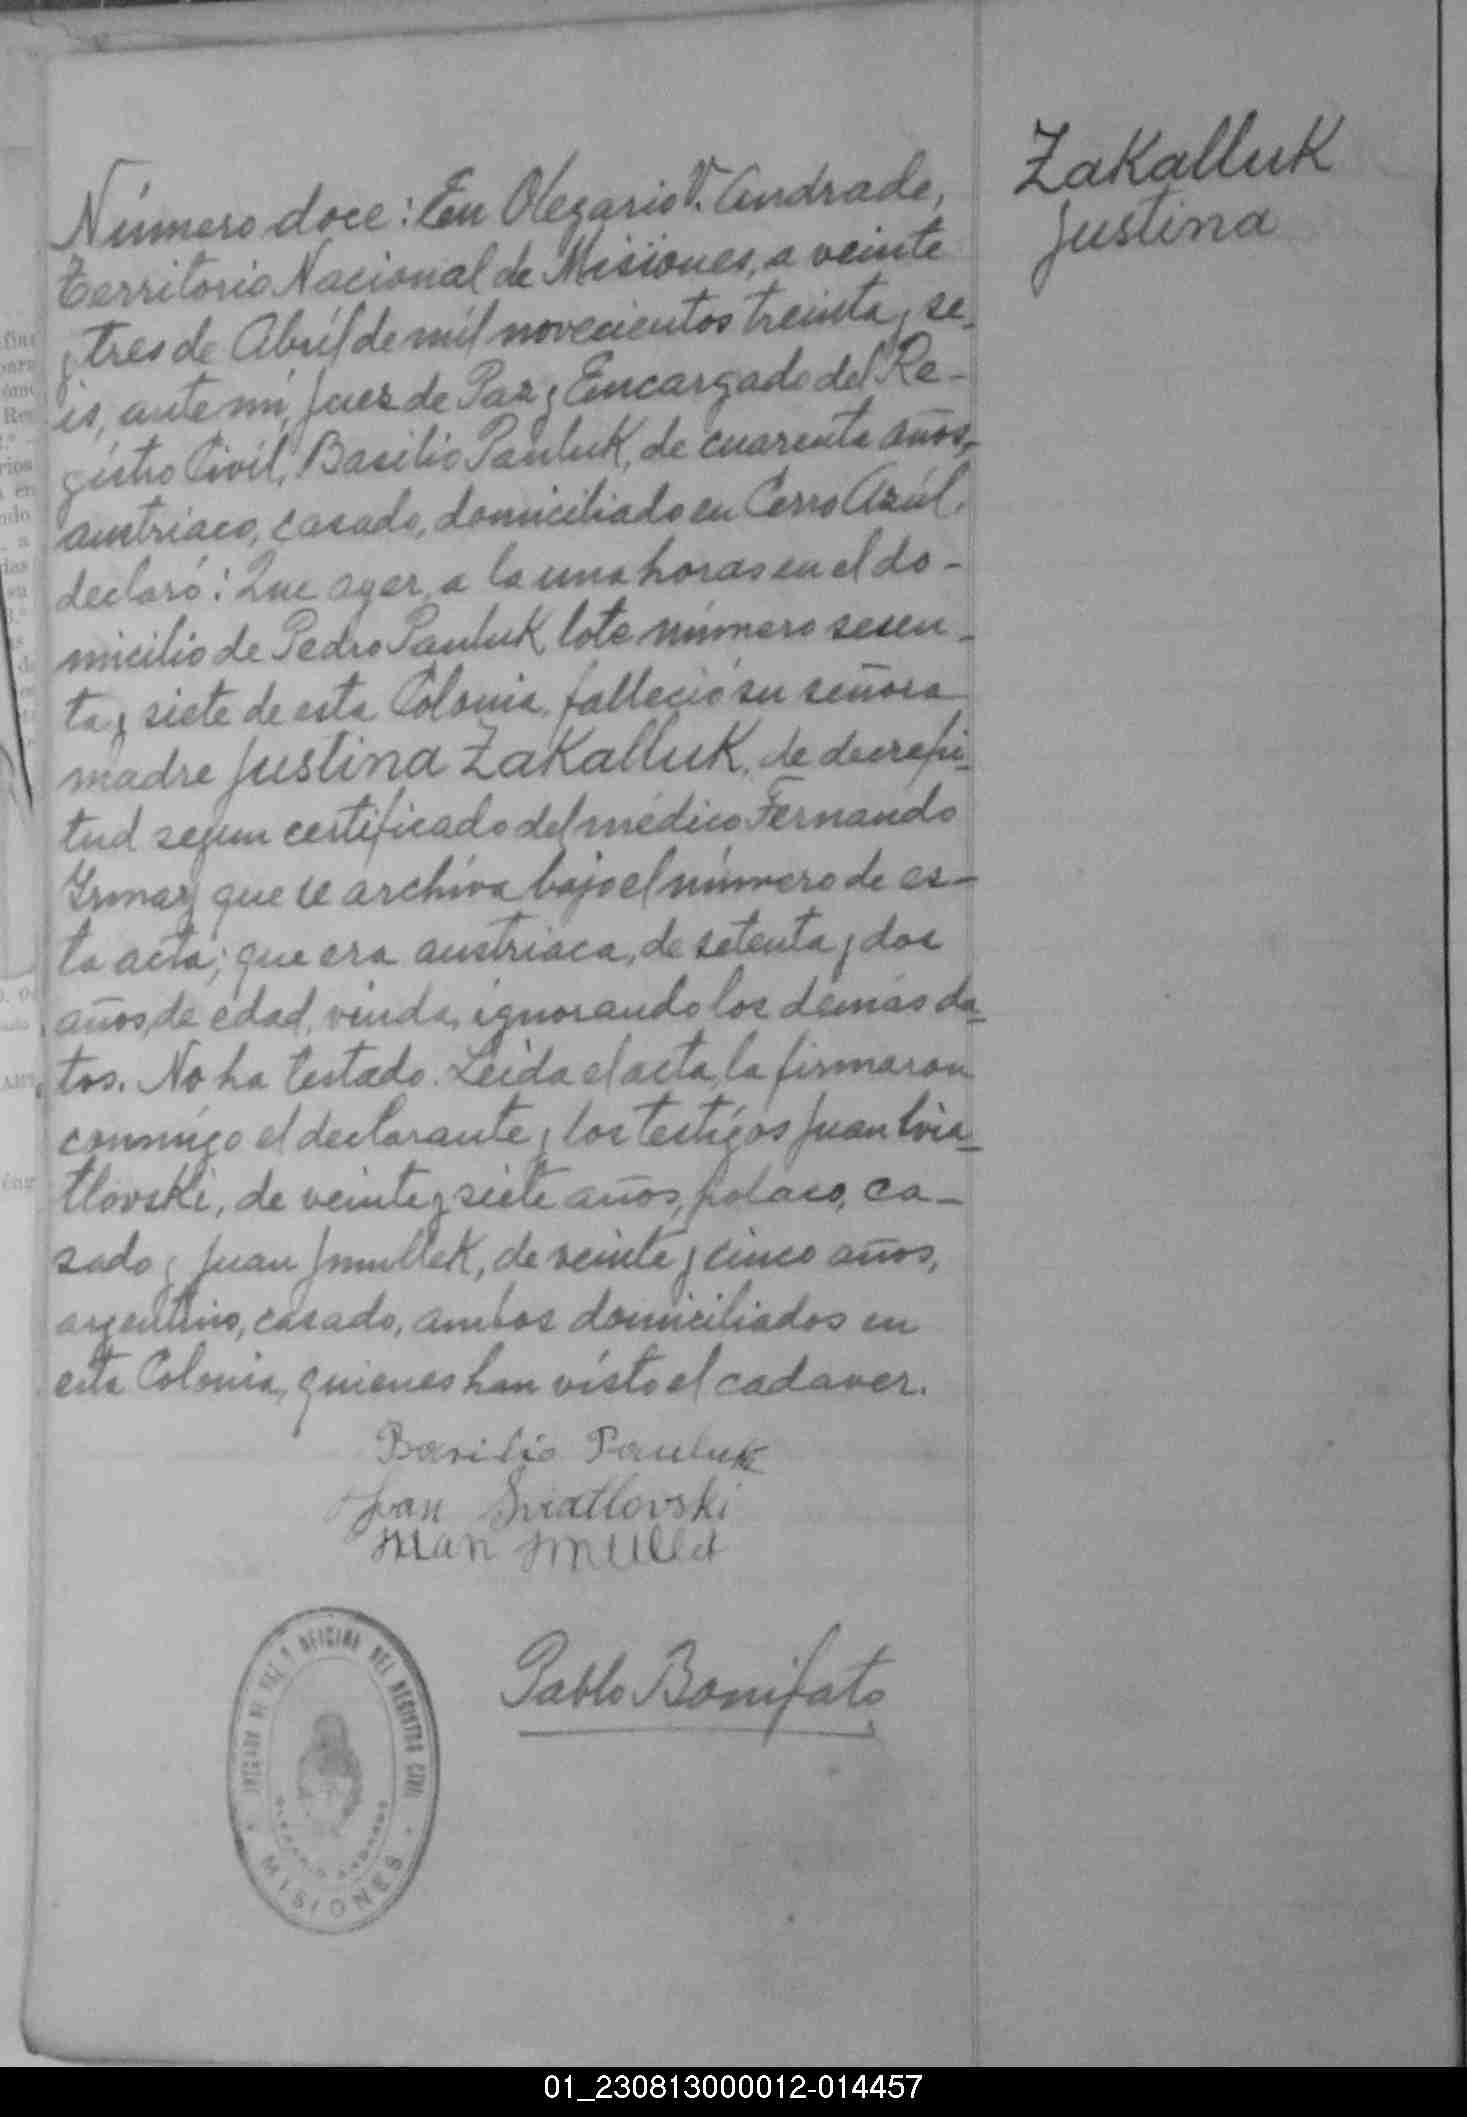 Zakalluk
Justina
Número doce: En Olegario V. Andrade,
territorio Nacional de Misiones, a veinte
y tres de Abril de mil novecientos treinta y se-
is, ante mí, Juez de Paz y Encargado del Re-
gistro Civil, Basilio Pauluk, de cuarenta años,
austriaco, casado, domiciliado en Cerro Azúl,
declaró: Que ayer, a la una horas en el do-
micilio de Pedro Pauluk, lote número sesen-
ta y siete de esta Colonia, falleció su señora
madre Justina Zakalluk, de decrepi-
tud segun certificado del médico Fernando
que se archiva bajo el número de es-
ta acta; que era austriaca, de setenta y dos
años de edad, viuda, ignorando los demás da-
tos. No ha testado. Leida el acta, la firmaron
conmigo el declarante y los testigos Juan
tlovski, de veinte y siete años, polaco, ca-
sado y Juan Jmullek, de veinte y cinco años,
argentino, casado, ambos domiciliados en
esta Colonia, quienes han visto el cadaver.
Basilio Pauluk
Sviatlovski
Juan
Pablo Bonifato
JUZGADO DE PAZ Y OFICINA DEL REGISTRO CIVIL
OLEGARIO ANDRADE
MISIONES
01_230813000012-014457